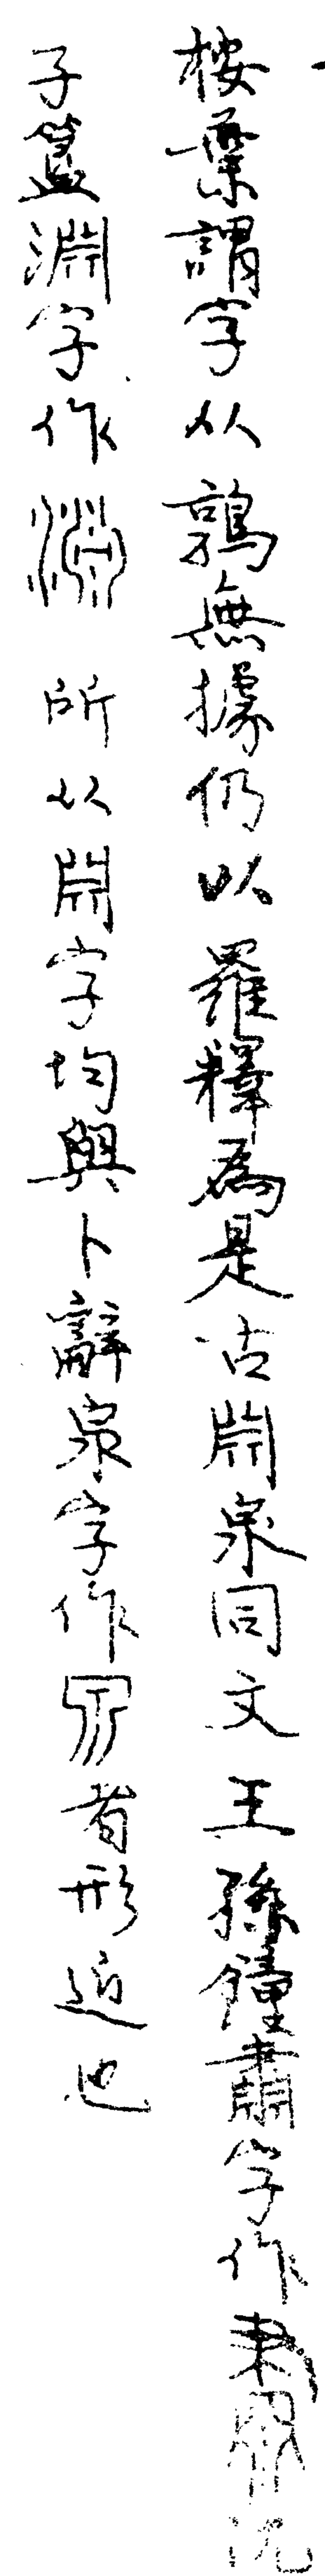 按葉謂字从鶉無據仍以羅釋為是古𣶒泉同文王孫鐘肅字作沈
子簋淵字作所从𣶒字均與卜辭泉字作者形近也